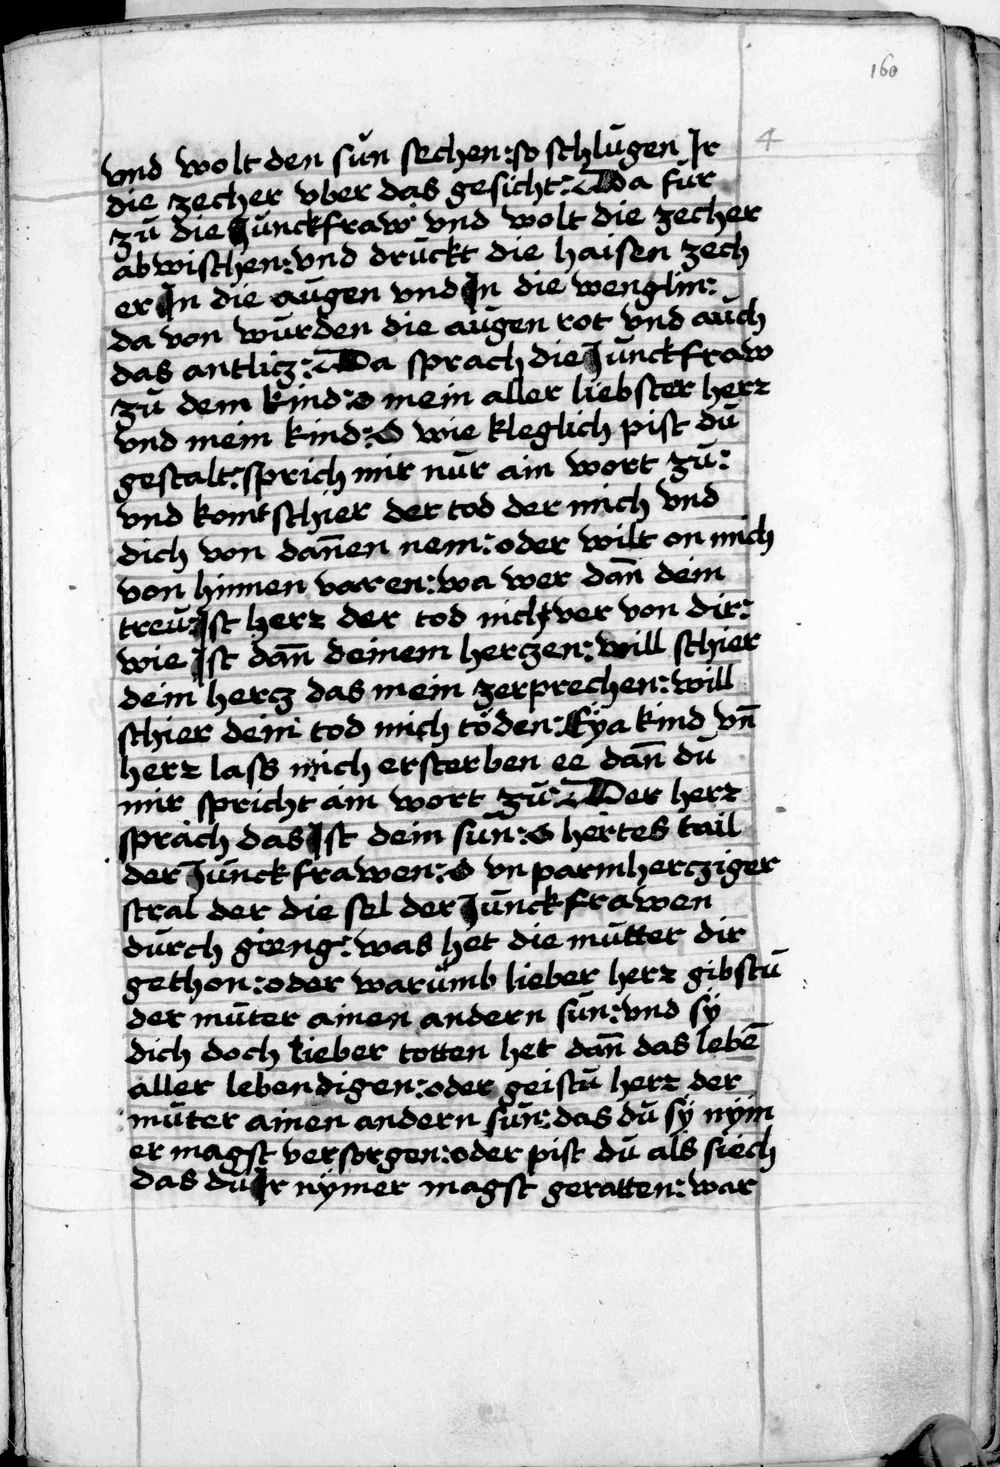 160
4
vnd wolt den sun sechen: so schlůgen Ir
die zecher vber das gesicht: Da fůr
zů die Junckfraw vnd wolt die zecher
abwischen: vnd druckt die haisen zech
er In die augen vnd In die wenglin:
da von wurden die augen rot vnd auch
das antlicz: Da sprach die Junckfraw
zů dem kind: o mein aller liebster herr
vnd mein kind: O wie kleglich pist dů
gestalt: sprich mir nůr ain wort zů:
vnd komt schier der tod der mich vnd
dich von dan̄en nem: oder wilt on mich
von hinnen varen: wa wer dan̄ dein
treů: Ist herr der tod nicht ver von dir:
wie Ist dan̄ deinem herczen: will schier
dein hercz das mein zerprechen: will
schier dein tod mich töden: Eya kind vn̄
herr lass mich ersterben ee dan̄ dů
mir spricht ain wort zů: Der herr
sprach das Ist dein sůn: O hertes tail
der Junckfrawen: O vnparmhercziger
stral der die sel der Junckfrawen
důrch gieng: was het die můtter dir
gethon: oder warůmb lieber herr gibstů
der můter ainen andern sůn: vnd sÿ
dich doch lieber totten het dan̄ das lebē
aller lebendigen: oder geistů herr der
můter ainen andern sůn: das dů sÿ nÿm
er magst versorgen: oder pist dů als siech
das dů Ir nÿmer magst geratten: war